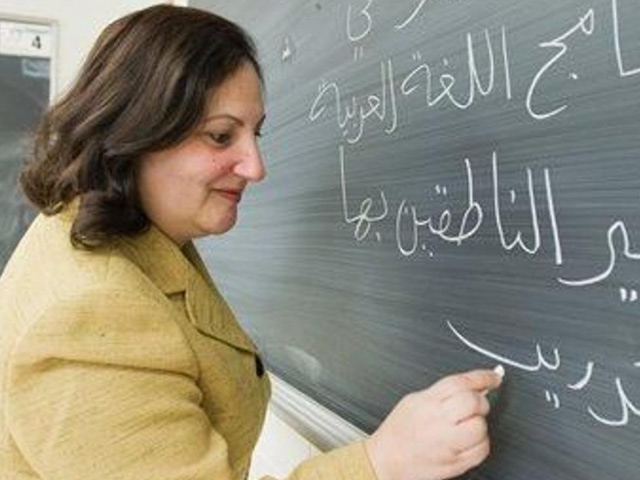 4
امج اللغة العربية
ير الناطقين بها
دريب